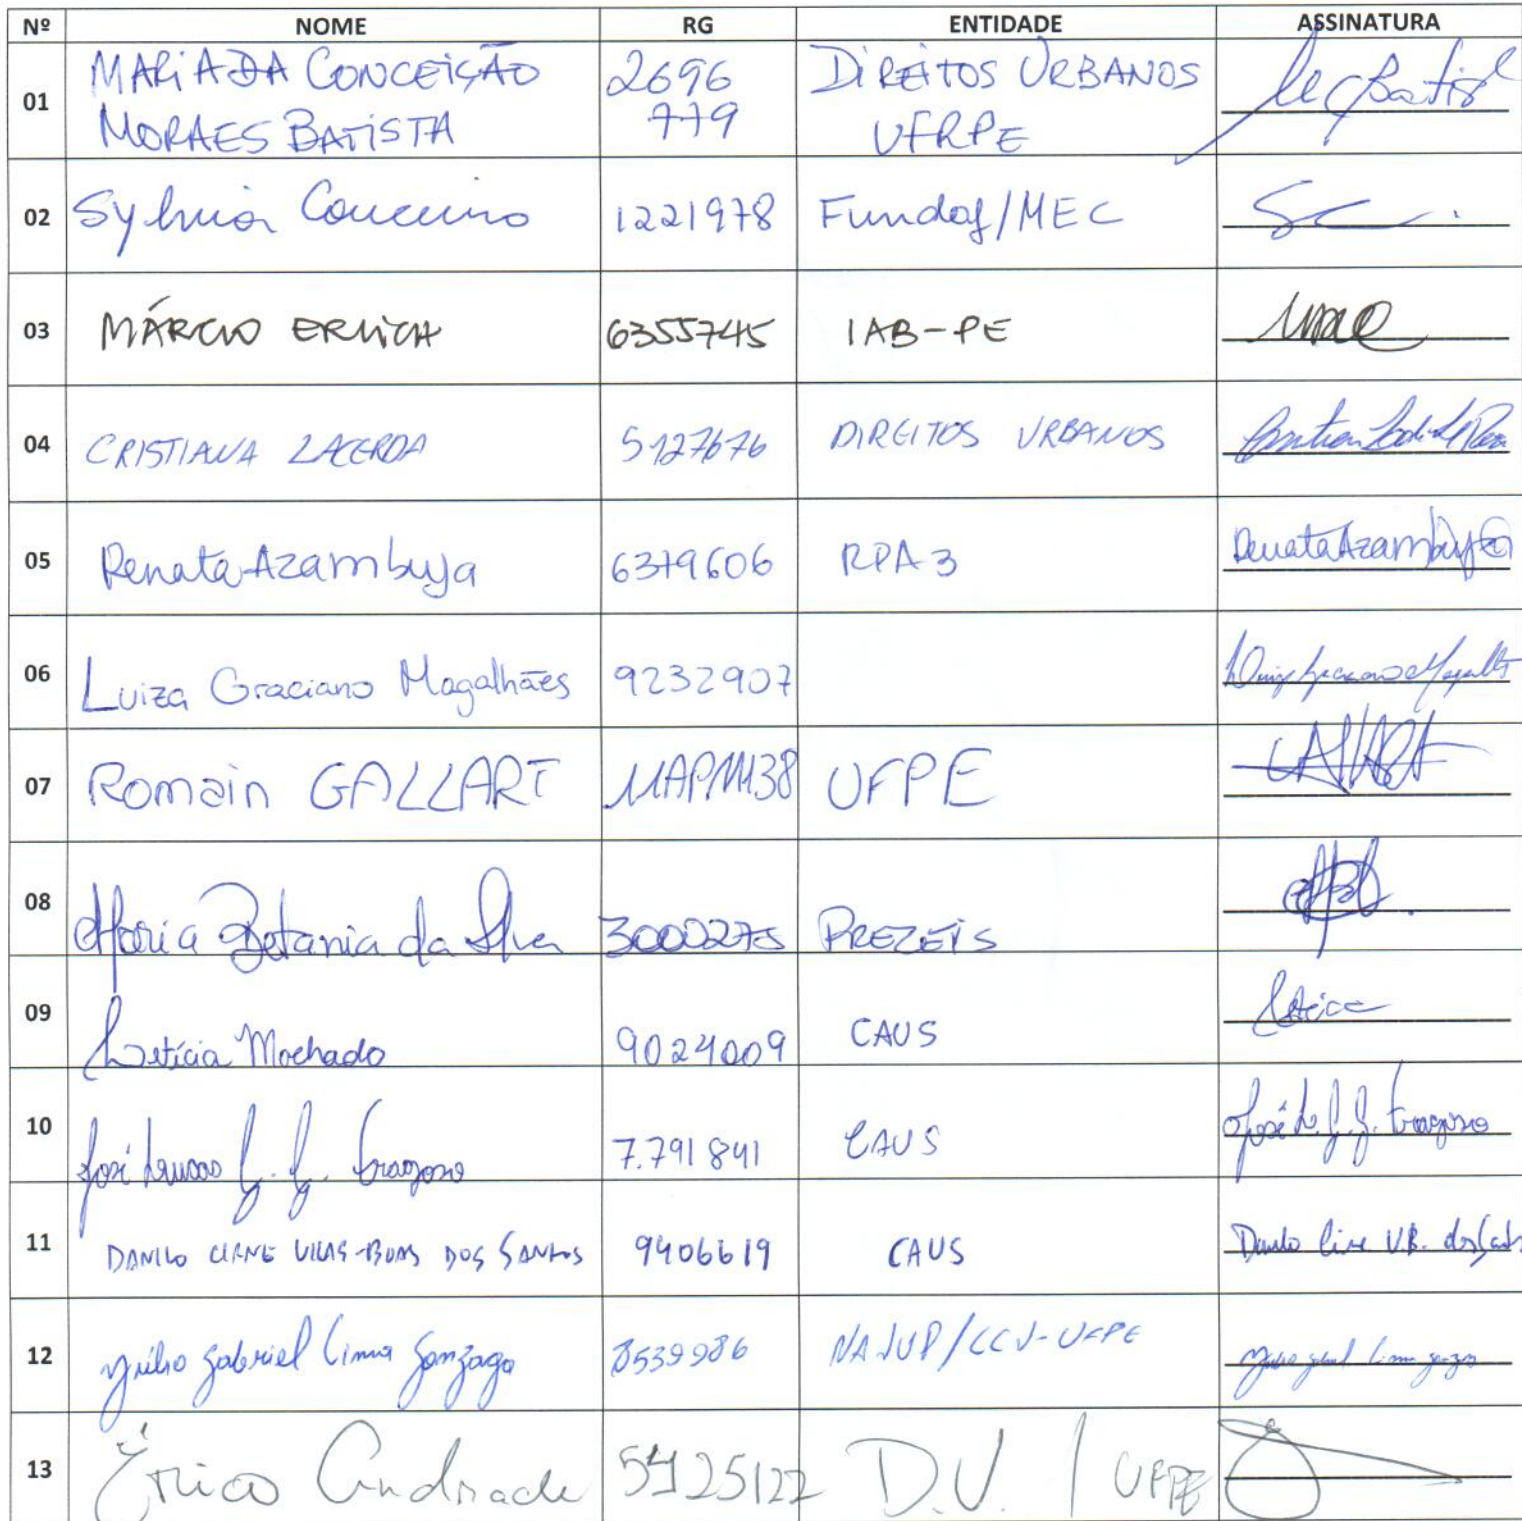 Nº NOME RG ENTIDADE ASSINATURA
01 MARIA DA CONCEIÇÃO MORAES BATISTA 2696 779 DIREITOS URBANOS UFRPE
02 Sylvia Couceiro 1221978 Fundaj/MEC
03 MÁRCIO ERLICH 6355745 IAB-PE
04 CRISTIANA LACERDA 5127676 DIREITOS URBANOS
05 Renata Azambuja 6379606 RPA3 Renata Azambuja
06 Luiza Graciano Magalhães 9232907 Luiza Graciano Magalhães
07 Romain GALLART UFPE
08 Maria Betania da Silva 3000275 PREZEIS
09 Letícia Machado 9024009 CAUS Letícia
10 José Lucas G. G. Fragoso 7.791841 CAUS José L. G. G. Fragoso
11 DANILO CIRNE VILAS-BOAS DOS SANTOS 9406619 CAUS Danilo Cirne V.B. dos Santos
12 Júlio Gabriel Lima Gonzaga 8539986 NAJUP/CCJ-UFPE
13 Érico Andrade D.U. / UFPE